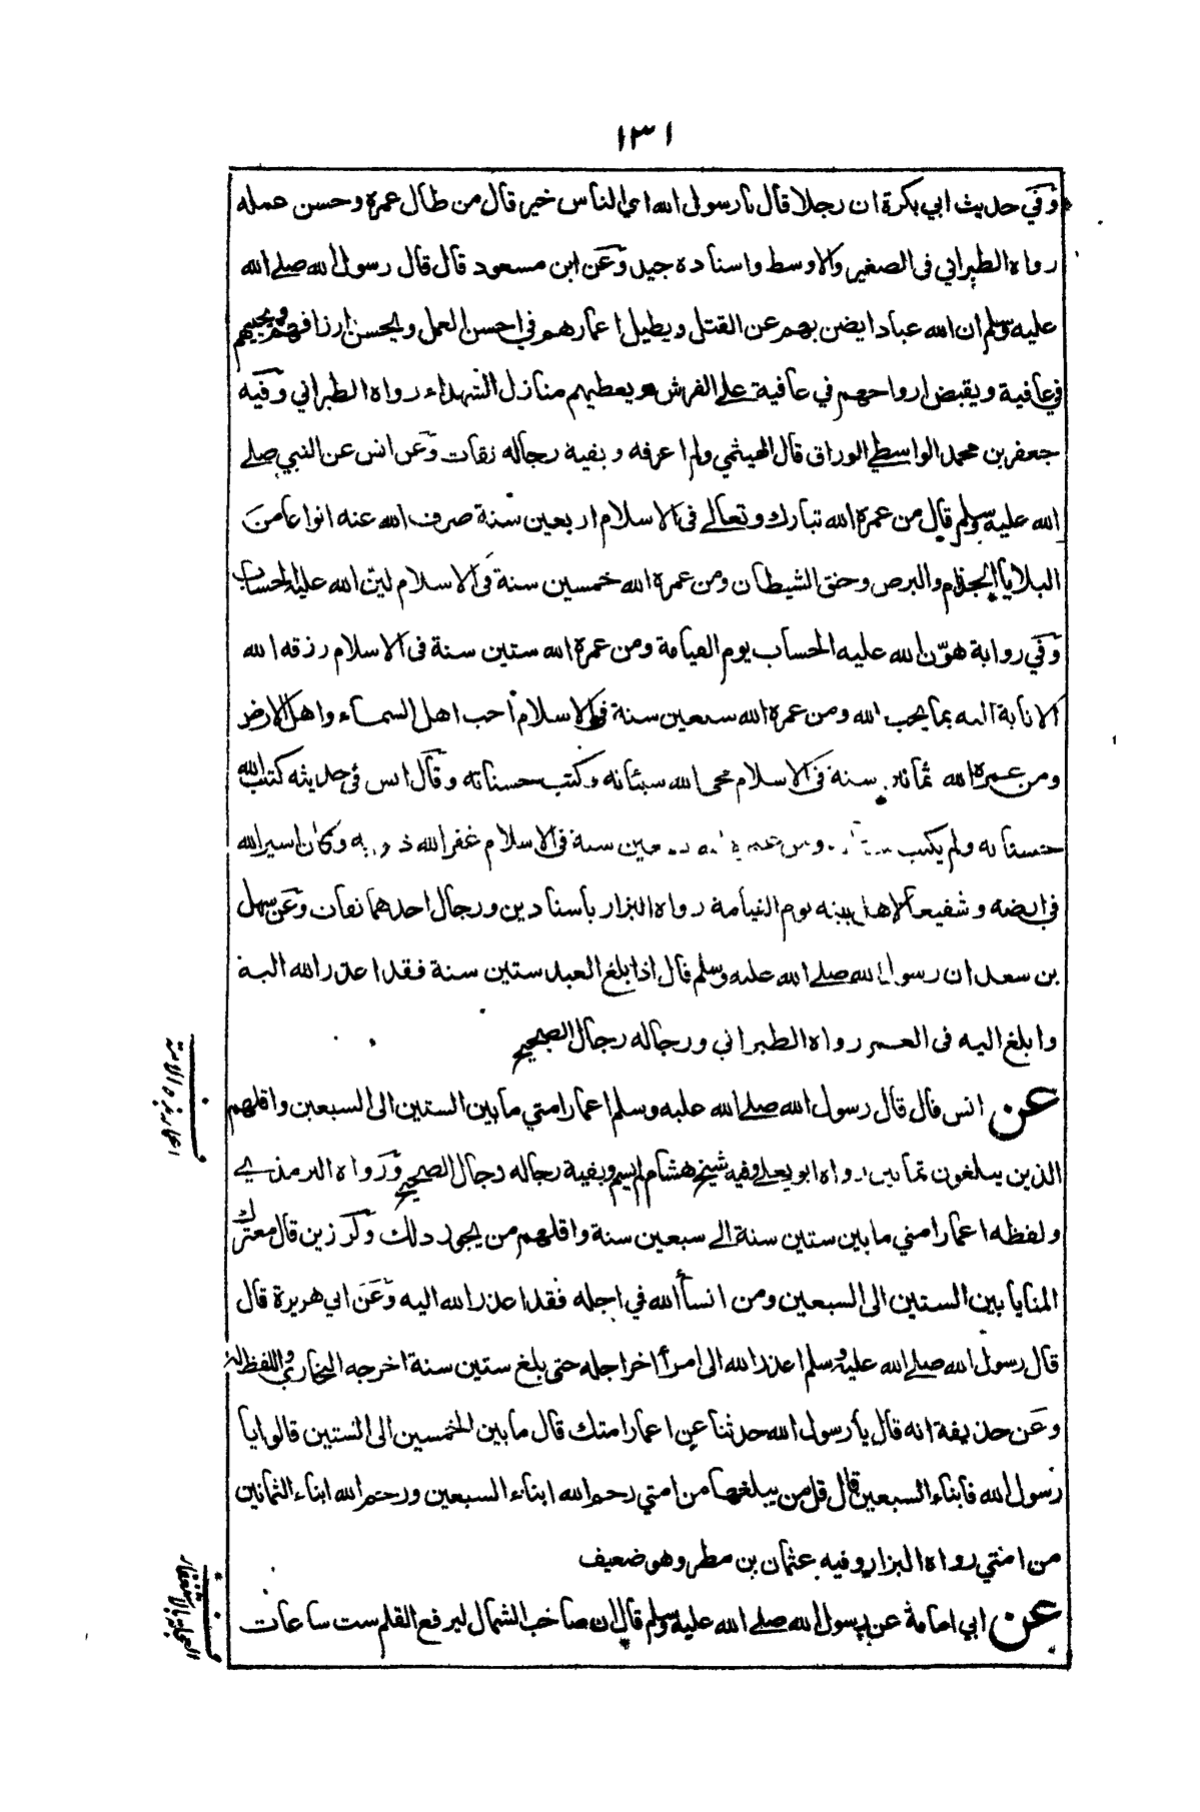 ١٣١
وفي حديث ابي بكرة ان رجلا قال يا رسول الله اي الناس خير قال من طال عمره وحسن عمله
رواه الطبراني في الصغير والاوسط واسناده جيد وعن ابن مسعود قال قال رسول الله صلے الله
عليه وسلم ان الله عبادا يضن بهم عن القتل ويطيل اعمارهم في احسن العمل ويحسن ارزاقهم ويحييهم
في عافية ويقبض ارواحهم في عافية علے الفرش ويعطيهم منازل الشهداء رواه الطبراني وفيه
جعفر بن محمد الواسطي الوراق قال الهيثمي ولم اعرفه وبقية رجاله ثقات وعن انس عن النبي صلے
الله عليه وسلم قال من عمره الله تبارك وتعالے في الاسلام اربعين سنة صرف الله عنه انواعا من
البلايا الجذام والبرص وخنق الشيطان ومن عمره الله خمسين سنة في الاسلام لين الله عليه الحساب
وفي رواية هوّن الله عليه الحساب يوم القيامة ومن عمره الله ستين سنة في الاسلام رزقه الله
الانابة اليه بما يحب الله ومن عمره الله سبعين سنة في الاسلام احب اهل السماء واهل الارض
ومن عمره الله ثمانين سنة في الاسلام محى الله سيئاته وكتب حسناته وقال انس في حديثه كتب الله
حسناته ولم يكتب سنة في الاسلام غفر الله ذنوبه وكان اسير الله
في ارضه وشفيعا لاهل بيته يوم القيامة رواه البزار باسنادين ورجال احدهما ثقات وعن سهل
بن سعد ان رسول الله صلے الله عليه وسلم قال اذا بلغ العبد ستين سنة فقد اعذر الله اليه
وابلغ اليه في العمر رواه الطبراني ورجاله رجال الصحيح
عن انس قال قال رسول الله صلے الله عليه وسلم اعمار امتي ما بين الستين الى السبعين واقلهم
الذين يبلغون ثمانين رواه ابو يعلے وفيه شيخ هشام لم يسم وبقية رجاله رجال الصحيح ورواه الترمذي
ولفظه اعمار امتي ما بين ستين سنة الے سبعين سنة واقلهم من يجوز ذلك وذكر رزين قال معترك
المنايا بين الستين الى السبعين ومن انسأ الله في اجله فقد اعذر الله اليه وعن ابي هريرة قال
قال رسول الله صلے الله عليه وسلم اعذر الله الى امرأ اخر اجله حتى بلغ ستين سنة اخرجه البخاري واللفظ له
وعن حذيفة انه قال يا رسول الله حدثنا عن اعمار امتك قال ما بين الخمسين الى الستين قالوا يا
رسول الله فابناء السبعين قال قل من يبلغها من امتي رحم الله ابناء السبعين ورحم الله ابناء الثمانين
من امتي رواه البزار وفيه عثمان بن مطر وهو ضعيف
عن ابي امامة عن رسول الله صلے الله عليه وسلم قال ان صاحب الشمال ليرفع القلم ست ساعات